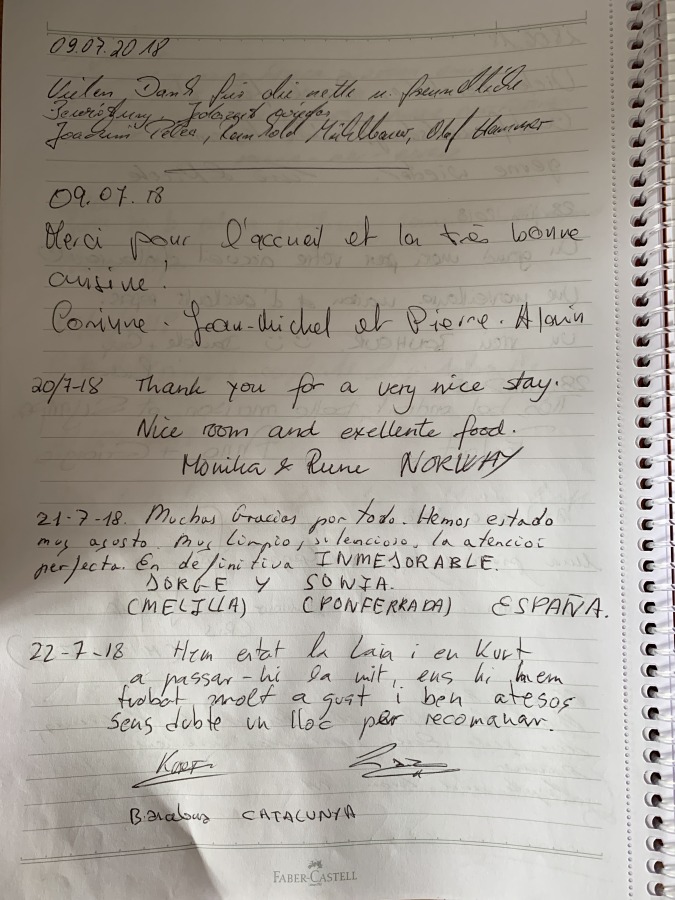 09.07.2018
Vielen Dank für die nette u. freundliche
Bewirtung, Jederzeit wieder
Joachim Peter, Reinhold Mühlbauer, Olaf Hammer
09.07.18
Merci pour l'accueil et la très bonne
cuisine!
Corinne. Jean-Michel et Pierre. Alain
20/7-18 Thank you for a very nice stay.
Nice room and exellente food.
Monika & Rune NORWAY
21-7-18. Muchas Gracias por todo. Hemos estado
muy agusto. Muy limpio, silencioso, la atencioi
perfecta. En definitiva INMEJORABLE.
JORGE Y SONIA.
(MELILLA) (PONFERRADA) ESPAÑA.
22-7-18 Hem estat la Laia i en Kurt
a passar-hi la nit, ens hi hem
trobat molt a gust i ben atesos
sens dubte un lloc per recomanar.
Kurt
CATALUNYA
FABER-CASTELL